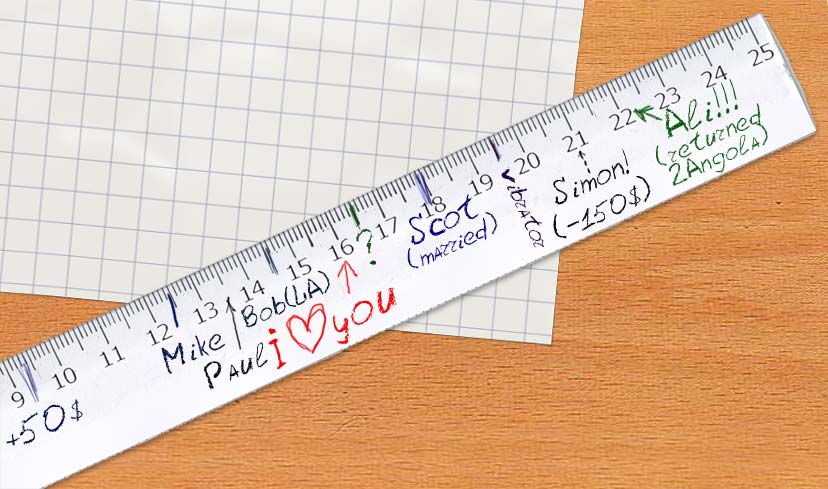 9 10 11 12 13 14 15 16 17 18 19 20 21 22 23 24 25
+50$
Mike
Paul
Bob(LA)
i ♡ you
?
Scot
(married)
vibrator
Simon!
(-150$)
Ali!!!
(returned
2Angola)